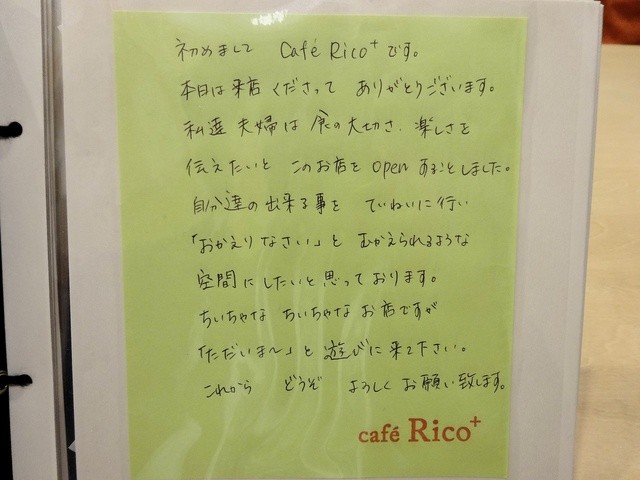 初めまして Café Rico⁺です。
本日は来店くださって ありがとうございます。
私達夫婦は食の大切さ、楽しさを
伝えたいと このお店をopenすることしました。
自分達の出来る事を ていねいに行い
「おかえりなさい」と むかえられるような
空間にしたいと思っております。
ちいちゃな ちいちゃな お店ですが
「ただいま〜」と遊びに来て下さい。
これから どうぞ よろしくお願い致します。
café Rico⁺